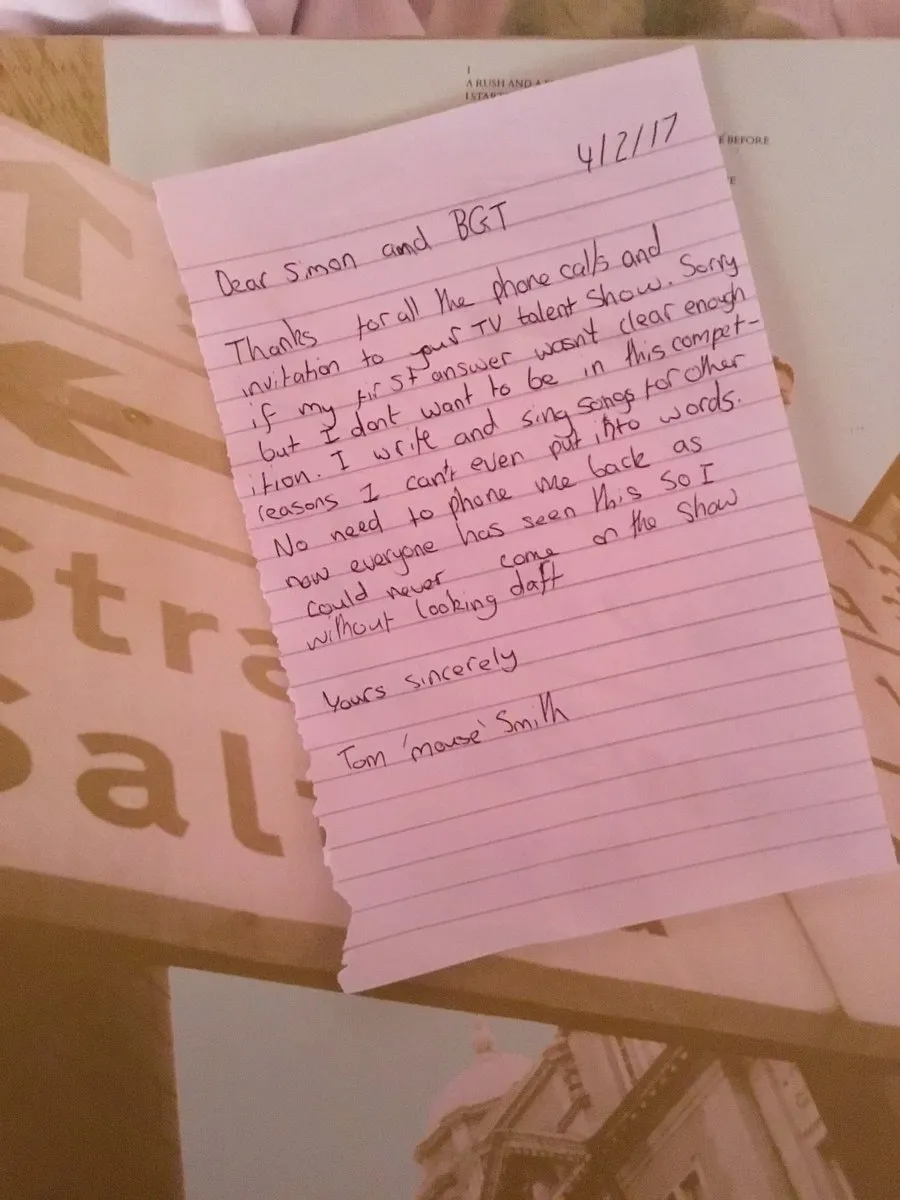 I
A RUSH AND A
I STAR
E BEFORE
E
4/2/17
Dear Simon and BGT
Thanks for all the phone calls and
invitation to your TV talent show. Sorry
if my first answer wasn't clear enough
but I dont want to be in this compet-
ition. I write and sing songs for other
reasons I can't even put into words.
No need to phone me back as
now everyone has seen this so I
could never come on the show
without looking daft
Yours sincerely
Tom 'mouse' Smith
Stra
Sal